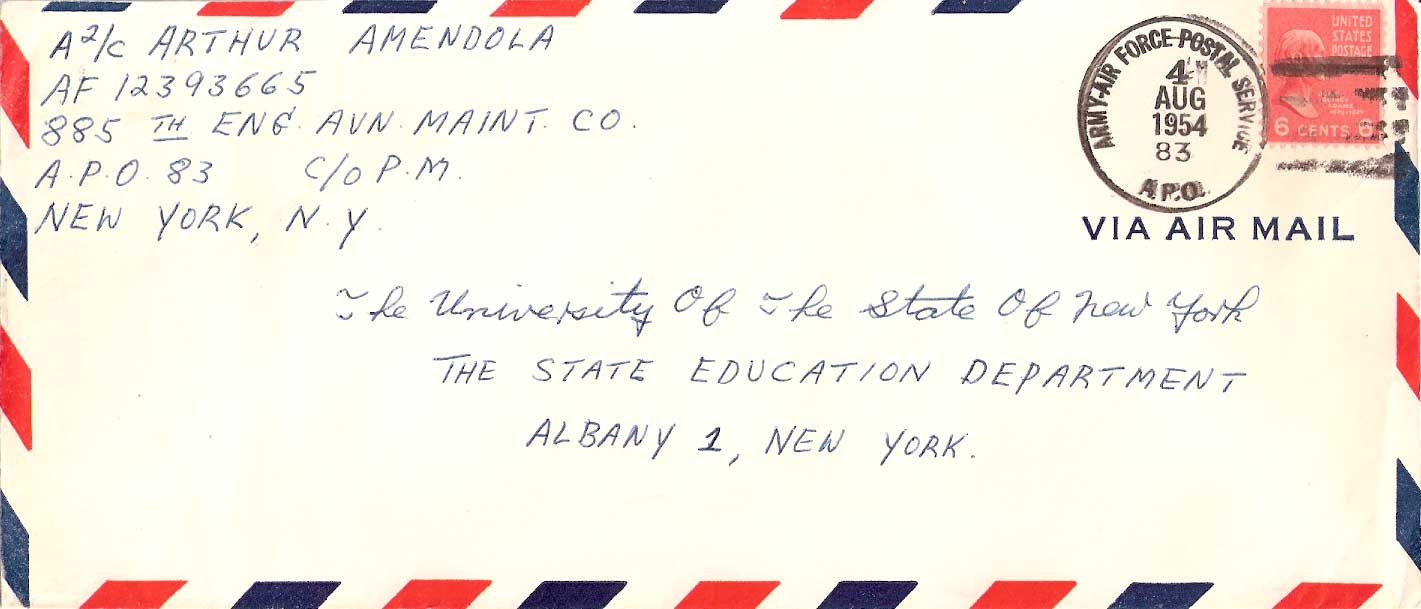 A2/C ARTHUR AMENDOLA
AF 12393665
885 TH ENG. AVN. MAINT. CO.
A.P.O. 83 C/O P.M.
NEW YORK, N.Y.
ARMY-AIR FORCE POSTAL SERVICE
4
AUG
1954
83
A.P.O.
UNITED
STATES
POSTAGE
QUINCY
ADAMS
6 CENTS 6
VIA AIR MAIL
The University Of The State Of New York
THE STATE EDUCATION DEPARTMENT
ALBANY 1, NEW YORK.